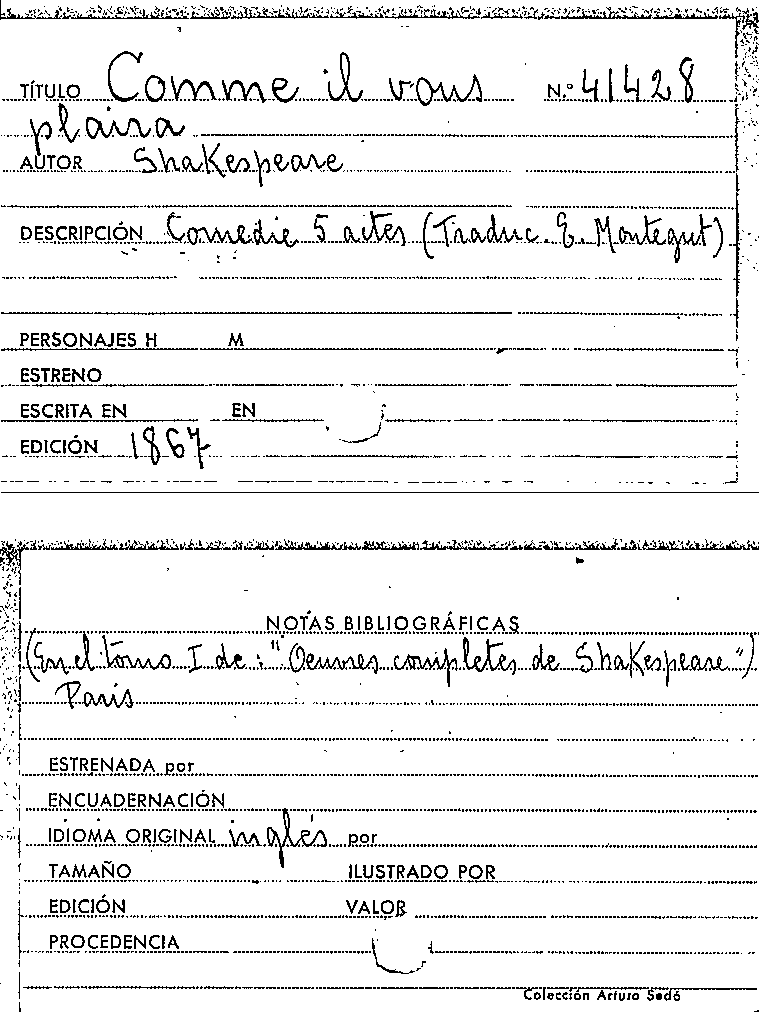 TÍTULO Comme il vous N.º 41428
plaira
AUTOR Shakespeare
DESCRIPCIÓN Comedie 5 actes (Traduc. E. Montegut)
PERSONAJES H M
ESTRENO
ESCRITA EN EN
EDICIÓN 1867
NOTAS BIBLIOGRÁFICAS
(En el tomo I de: "Oeuvres completes de Shakespeare")
Paris
ESTRENADA por
ENCUADERNACIÓN
IDIOMA ORIGINAL inglés por
TAMAÑO ILUSTRADO POR
EDICIÓN VALOR
PROCEDENCIA
Colección Arturo Sedó